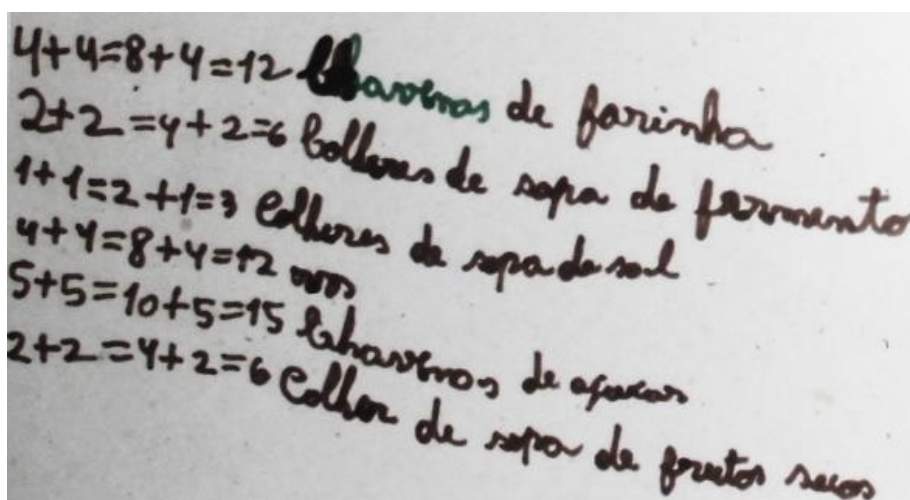 4+4=8+4=12 Chavenas de farinha
2+2=4+2=6 Colheres de sopa de fermento
1+1=2+1=3 Colheres de sopa de sal
4+4=8+4=12 ovos
5+5=10+5=15 Chavenas de açucar
2+2=4+2=6 Colher de sopa de frutos secos